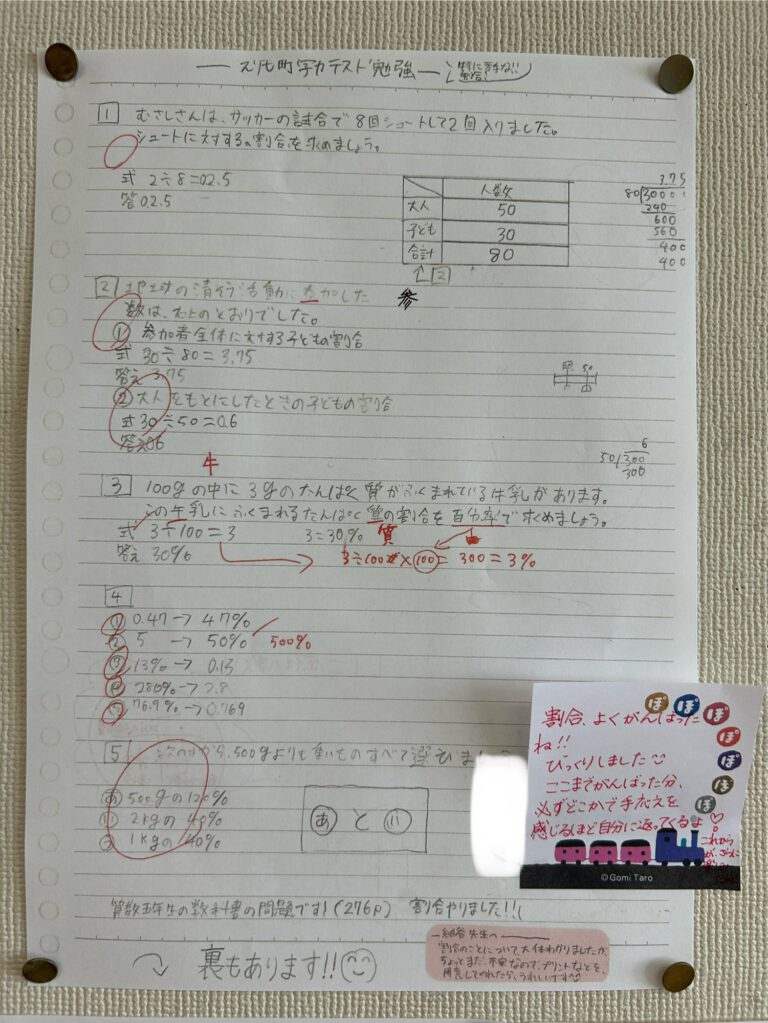 テスト勉強
1 むさしさんは、サッカーの試合で8回シュートして2回入りました。
シュートに対する割合を求めましょう。
式 2÷8=02.5
答02.5
人数
大人 50
子ども 30
合計 80
↑2
3.75
80)3000
240
600
560
400
400
2 の清そう活動に参加した
参
数は、右上のとおりでした。
① 参加者全体に対する子どもの割合
式 30÷80=3.75
答え 3.75
② 大人をもとにしたときの子どもの割合
式30÷50=0.6
答え06
6
50)300
300
牛
3 100gの中に3gのたんぱく質がふくまれている牛乳があります。
この牛乳にふくまれるたんぱく質の割合を百分率で求めましょう。
式 3÷100=3 3=30% 質
答え 30%
3÷100×100=300=3%
4
① 0.47→47%
② 5→50% 500%
③ 13%→0.13
④ 280%→2.8
⑤ 76.9%→0.769
5 500gよりも重いものすべて選びましょう
あ 500gの120%
い 2kgの40%
う 1kgの40%
あ と い
算数五年生の教科書の問題です!(276p) 割合やりました!!
裏もあります!!
先生へ
割合のことについて、大体わかりましたが、
ちょっとまだ不安なので、プリントなどを
用意してくれたら、うれしいです
ぽ ぽ ぽ ぽ ぽ ぽ ぽ
割合、よくがんばった
ね!!
びっくりしました
ここまでがんばった分、
必ずどこかで手応えを
感じるほど自分に返ってくるよ
これから
©Gomi Taro